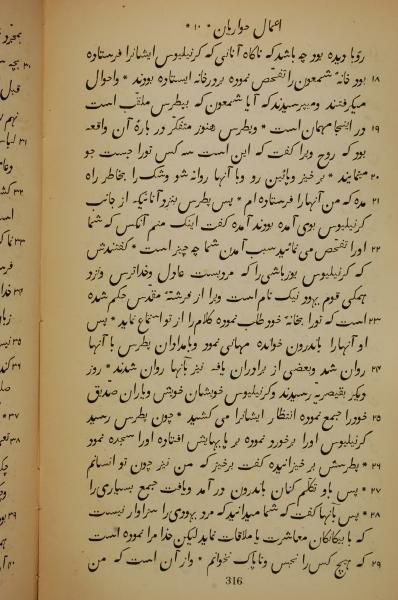 اعمال حواریان * ۱۰ *
رؤیا دیده بود چه باشد که ناگاه آنانی که کرنیلیوس ایشانرا فرستاده
۱۸ بود خانهٔ شمعون را تفحّص نموده بر در خانه ایستاده بودند * واحوال
میگرفتند ومیپرسیدند که آیا شمعون که بپطرس ملقّب است
۱۹ در اینجا مهمان است * وپطرس هنوز متفکّر در بارهٔ آن واقعه
بود که روح ویرا گفت که این است سه کس تورا جست جو
۲۰ مینمایند * برخیز وپائین رو وبا آنها روانه شو وشک را بخاطر راه
۲۱ مده که من آنهارا فرستاده ام * پس پطرس بنزد آنانیکه از جانب
کرنیلیوس بوی آمده بودند آمده گفت اینک منم آنکس که شما
۲۲ اورا تفحّص می نمائید سبب آمدن شما چه چیز است * گفتندش
که کرنیلیوس یوزباشی را که مردیست عادل وخداترس ونزد
همگی قوم یهود نیک نام است ویرا از فرشتهٔ مقدّس حکم شده
۲۳ است که تورا بخانهٔ خود طلب نموده کلام را از تو استماع نماید * پس
او آنهارا باندرون خوانده مهمانی نمود وبامدادان پطرس با آنها
۲۴ روان شد وبعضی از برادران یافه نیز بآنها روان شدند * روز
دیگر بقیصریّه رسیدند وکرنیلیوس خویشان خویش ویاران صدّیق
۲۵ خودرا جمع نموده انتظار ایشانرا می کشید * چون پطرس رسید
کرنیلیوس اورا برخورد نموده بر پایهایش افتاده اورا سجده نمود
۲۶ * پطرسش برخیزانیده گفت برخیز که من نیز چون تو انسانم
۲۷ * پس باو تکلّم کنان باندرون در آمد ویافت جمع بسیاری را
۲۸ * پس بآنها گفت که شما میدانید که مرد یهودی را سزاوار نیست
که با بیگانگان معاشرت یا ملاقات نماید لیکن خدا مرا نموده است
۲۹ که هیچ کس را نجس وناپاک نخوانم * واز آن است که من
316